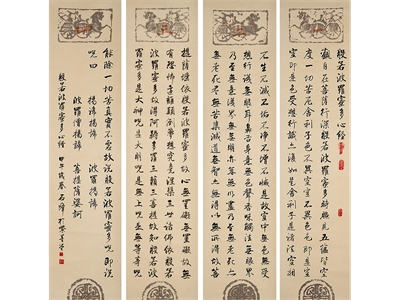 般若波羅蜜多心經
觀自在菩薩行深般若波羅蜜多時照見五蘊皆空
度一切苦厄舍利子色不異空空不異色色即是空
空即是色受想行識亦復如是舍利子是諸法空相
不生不滅不垢不淨不增不減是故空中無色無受
想行識無眼耳鼻舌身意無色聲香味觸法無眼界
乃至無意識界無無明亦無無明盡乃至無老死亦
無老死盡無苦集滅道無智亦無得以無所得故菩
提薩埵依般若波羅蜜多故心無罣礙無罣礙故無
有恐怖遠離顛倒夢想究竟涅槃三世諸佛依般若
波羅蜜多故得阿耨多羅三藐三菩提故知般若波
羅蜜多是大神咒是大明咒是無上咒是無等等咒
能除一切苦真實不虛故說般若波羅蜜多咒即說
咒曰 揭諦揭諦 波羅揭諦
波羅僧揭諦 菩提薩婆訶
般若波羅蜜多心經 甲午歲春石